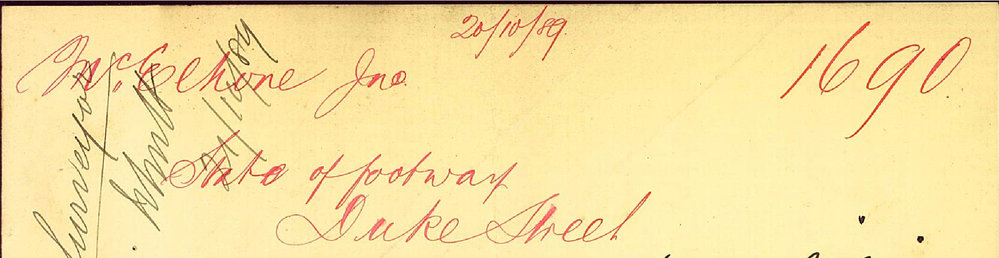 20/10/89.
McElhone Jno. 1690
State of footway
Duke Street
Surveyor
21/10/89